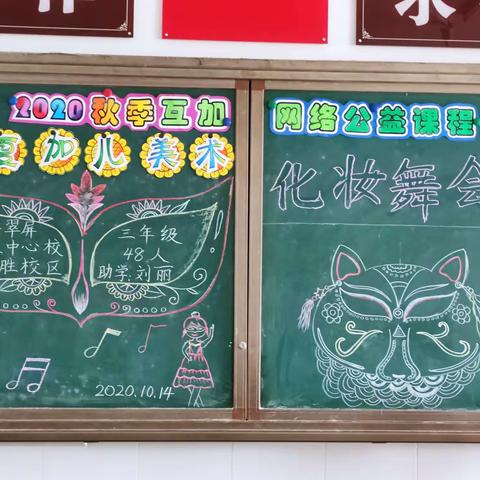 2020秋季互加
网络公益课程
夏加儿美术
化妆舞会
翠屏
中心校
胜校区
三年级
48人
助学:刘丽
2020.10.14